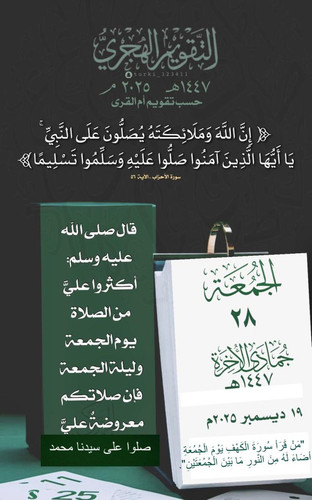 التقويم الهجري
١٤٤٧هـ ٢٠٢٥ م
حسب تقويم أم القرى
﴿ إِنَّ اللَّهَ وَمَلَائِكَتَهُ يُصَلُّونَ عَلَى النَّبِيِّ ۚ
يَا أَيُّهَا الَّذِينَ آمَنُوا صَلُّوا عَلَيْهِ وَسَلِّمُوا تَسْلِيمًا ﴾
سورة الأحزاب ،الآية ٥٦
قال صلى الله
عليه وسلم:
أكثروا عليَّ
من الصلاة
يوم الجمعة
وليلة الجمعة
فإن صلاتكم
معروضةٌ عليَّ
صلوا على سيدنا محمد
الجمعة
٢٨
جمادى الآخرة
١٤٤٧هـ
١٩ ديسمبر ٢٠٢٥م
"مَنْ قَرَأَ سُورَةَ الْكَهْفِ يَوْمَ الْجُمُعَةِ
أَضَاءَ لَهُ مِنَ النُّورِ مَا بَيْنَ الْجُمُعَتَيْنِ".
11
$ 25